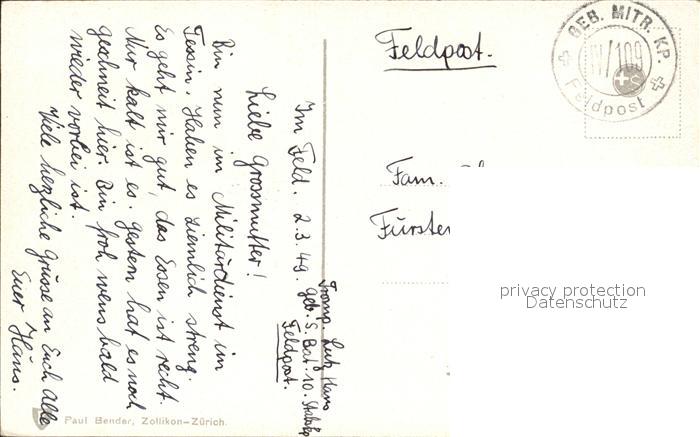 Feldpost.
GEB. MITR. KP.
IV/109
Feldpost
Fam.
Fürsten
privacy protection
Datenschutz
Im Feld. 2.3.49.
Liebe Grossmutter!
Bin nun im Militärdienst im
Tessin. Haben es ziemlich streng.
Es geht mir gut, das Essen ist recht.
Nur kalt ist es. Gestern hat es noch
geschneit hier. Bin froh wenns bald
wieder vorbei ist.
Viele herzliche Grüsse an Euch Alle
Euer Hans.
Tromp. Lutz Hans
geb. S. Bat. 10. Stabskp
Feldpost.
Paul Bender, Zollikon-Zürich.